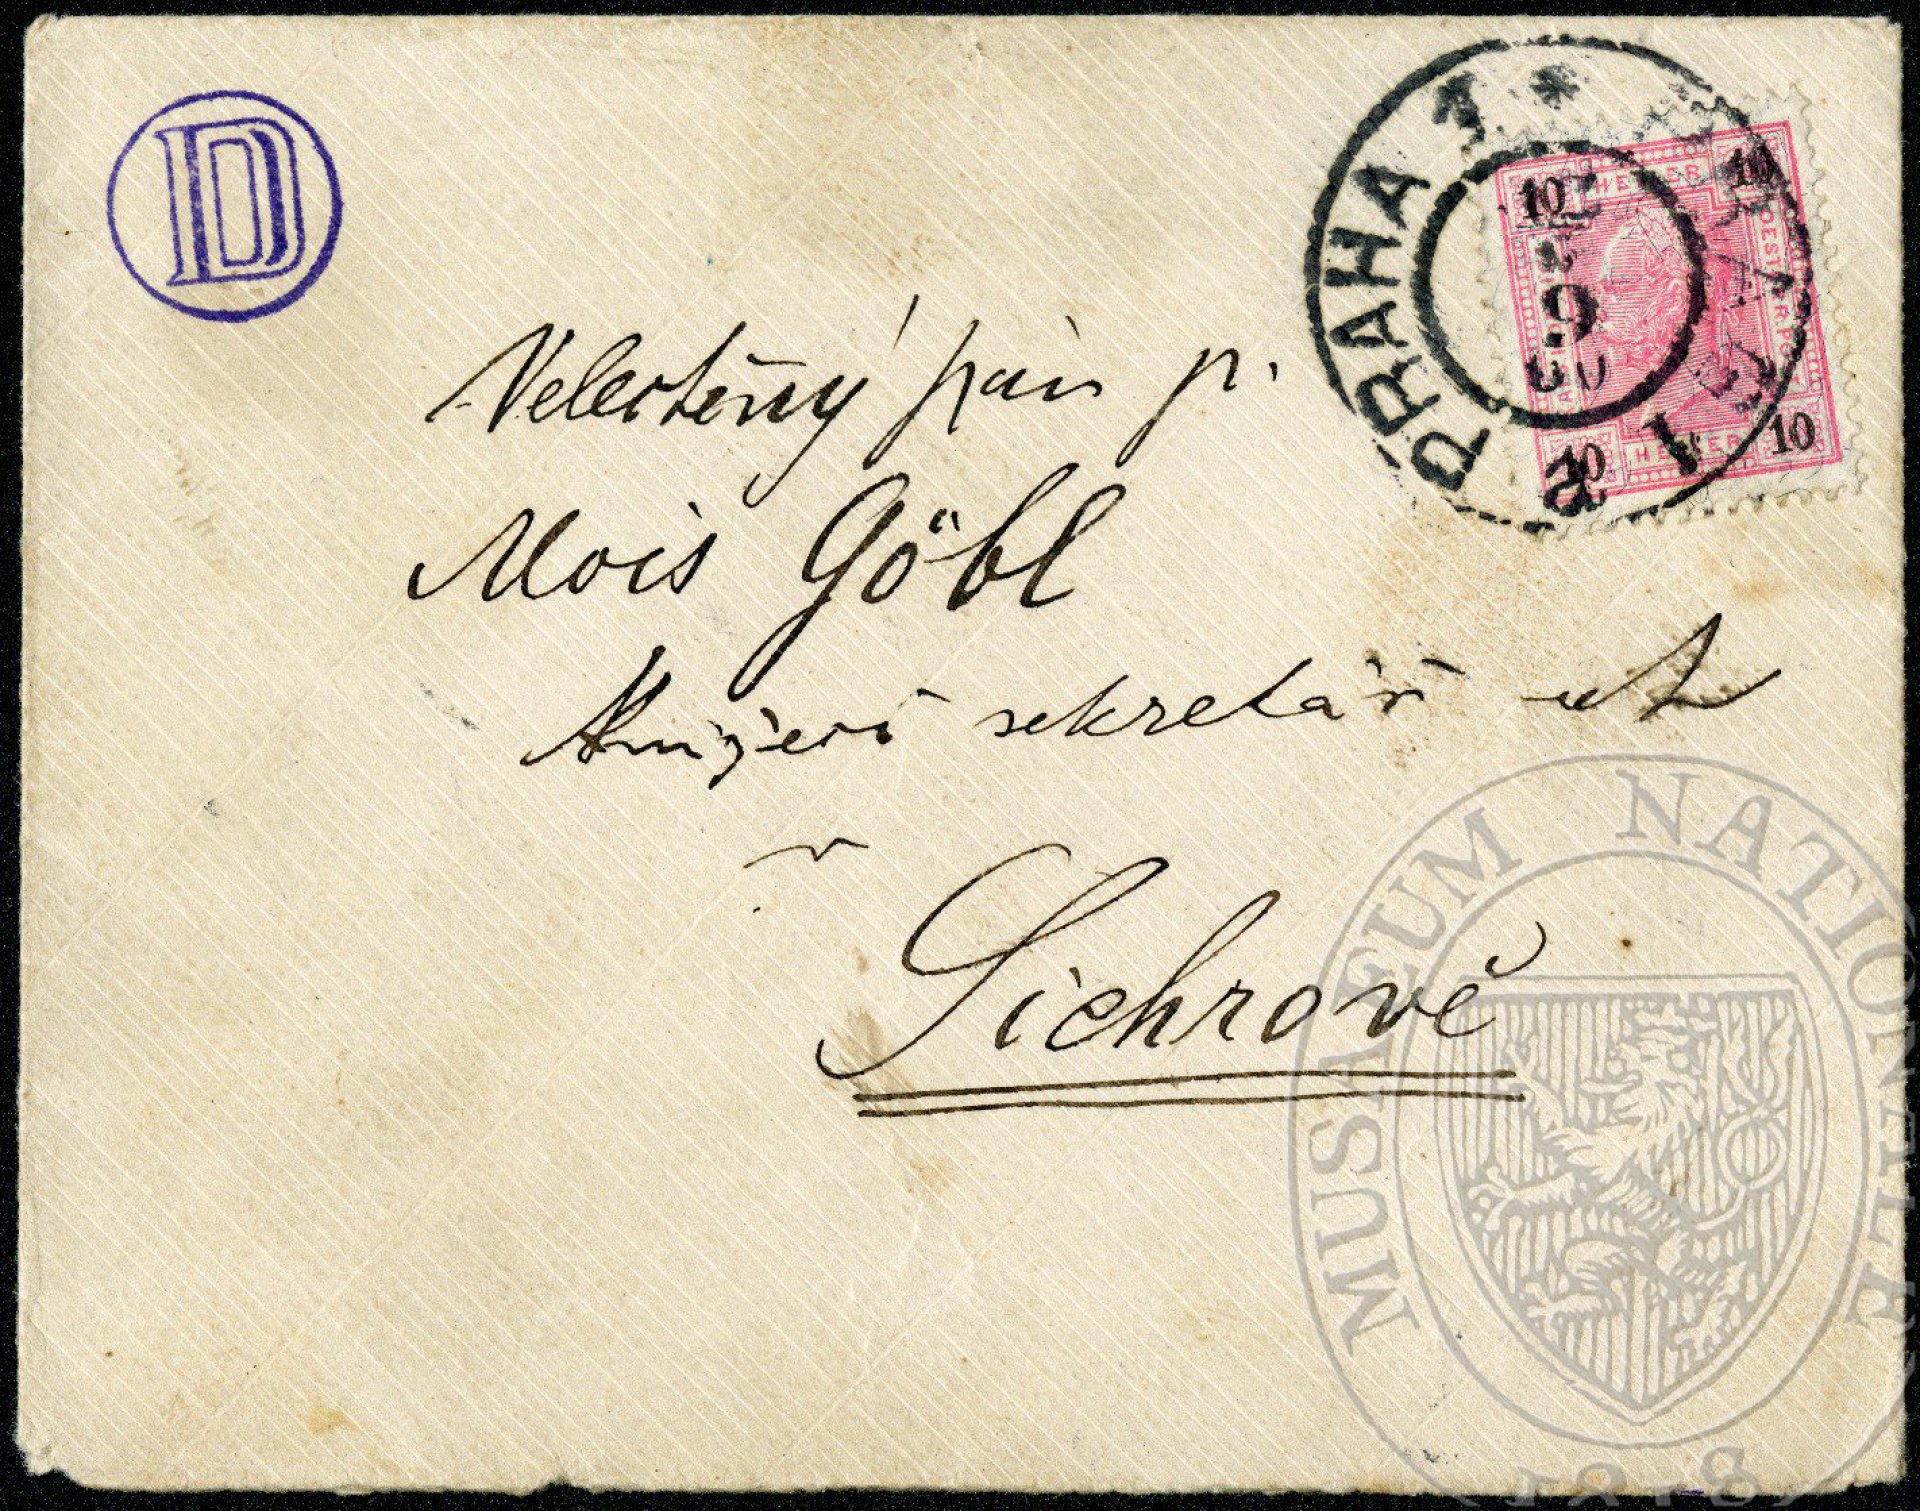 D
PRAHA 1 * PRAG 1
10 HELLER 10
OESTERR. POST
10 HELLER 10
Velectěný pán p.
Alois Göbl
Knížecí sekretář etc
v
Sichrově
MUSAEUM NATIONALE
1818